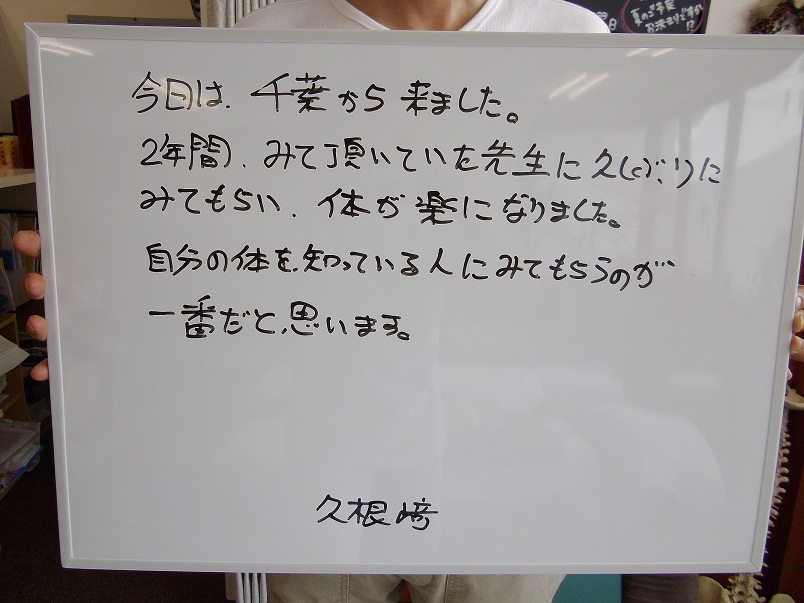 今日は、千葉から来ました。
2年間、みて頂いていた先生に久しぶりに
みてもらい、体が楽になりました。
自分の体を知っている人にみてもらうのが
一番だと思います。
久根﨑